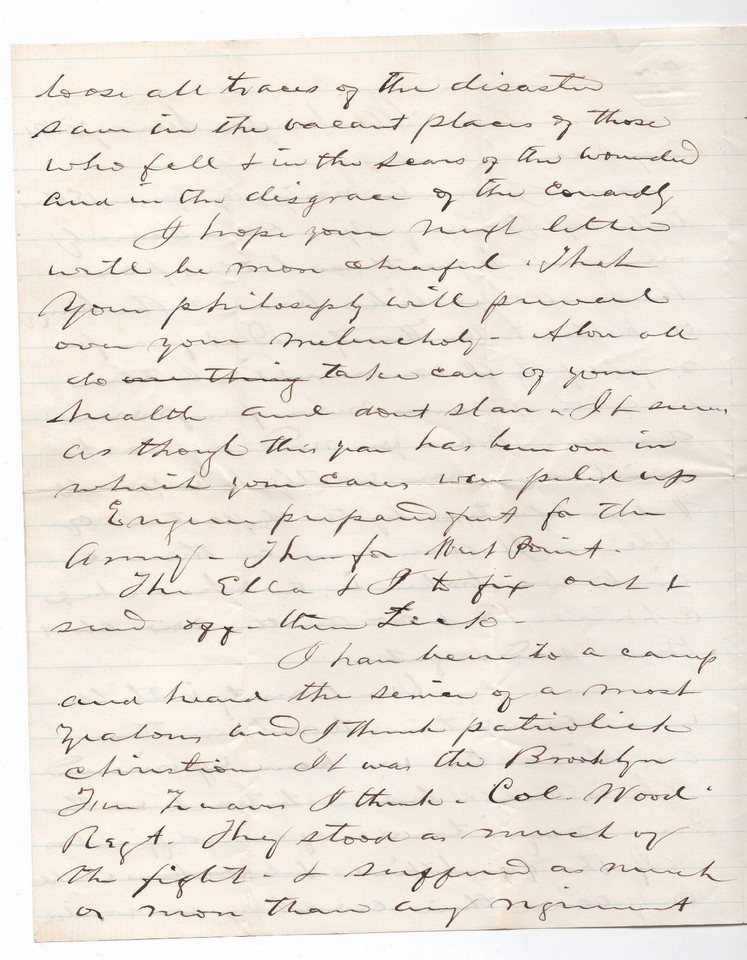 loose all traces of the disaster
save in the vacant places of those
who fell & in the scars of the wounded
and in the disgrace of the cowardly
I hope your next letter
will be more chearful. That
your philosophy will prevail
over your melencholy - Above all
do one thing take care of your
health and dont starve. It seems
as though this year has been one in
which your cares were piled up
Eugene prepared first for the
Army - Then for West Point.
The Ella & I to fix out &
send off - then Zeek -
I have been to a camp
and heard the service of a most
zealous and I think patriotick
christion It was the Brooklyn
Fire Zouaves I think - Col. Wood'
Regt. They stood as much of
the fight - & suffered as much
or more than any regiment